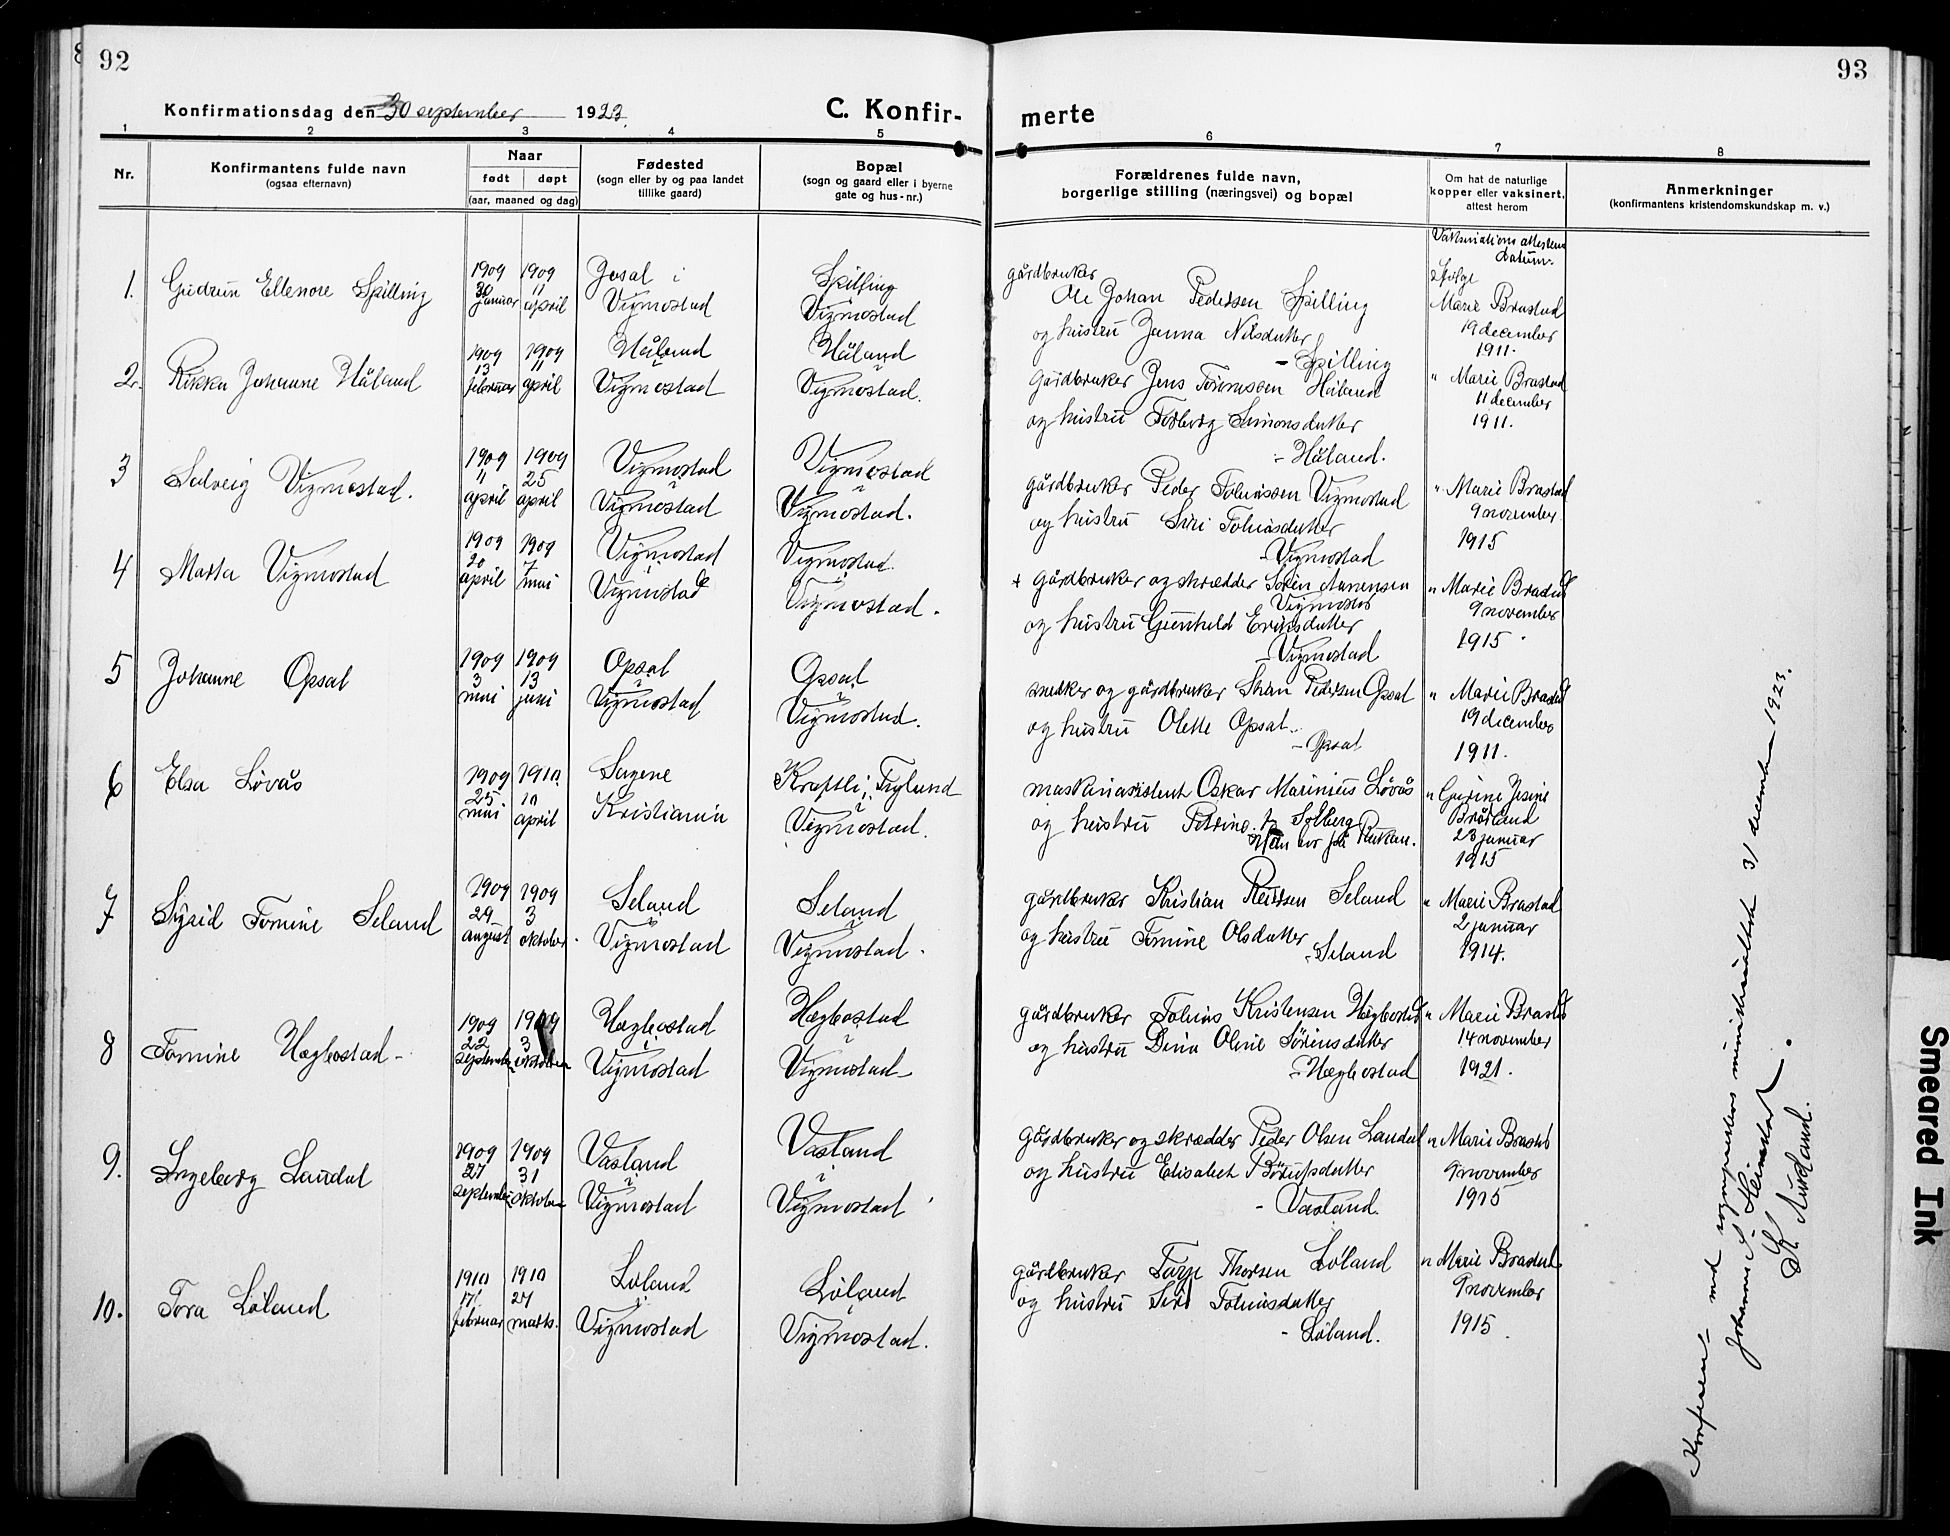 92
Konfirmationsdag den 30 september 1923.
C. Konfir-
1 2 3 4 5
Nr.
Konfirmantens fulde navn
(ogsaa efternavn)
Naar
født døpt
(aar, maaned og dag)
Fødested
(sogn eller by og paa landet
tillike gaard)
Bopæl
(sogn og gaard eller i byerne
gate og hus-nr.)
1909 1909 Josal i Spilling
1. Gudrun Ellenore Spilling 30 11
januar april Vigmostad Vigmostad
1909 1909 Håland Håland
2. Rikka Johanne Håland 13 11
februar april Vigmostad Vigmostad.
1909 1909 Vigmostad Vigmostad
3 Solveig Vigmostad. 11 25
april april Vigmostad Vigmostad.
1909 1909 Vigmostad Vigmostad.
4 Marta Vigmostad 20 7
april mai Vigmostad Vigmostad.
1909 1909 Opsal Opsal
5 Johanne Opsal 3 13
mai juni Vigmostad Vigmostad.
1909 1910 Sagene Kraftli, Fuglund
6 Elsa Løvås 25 10
mai april Kristiania Vigmostad.
1909 1909 Seland Seland
7 Sigrid Tomine Seland 29 3
august oktober. Vigmostad Vigmostad.
1909 1909 Hægbostad Hægbostad
8 Tomine Hægbostad- 22 3
september oktober Vigmostad Vigmostad-
1909 1909 Vasland Vasland
9. Ingeborg Laudal 27 31
september oktober Vigmostad Vigmostad
1910 1910 Løland Løland
10. Tora Løland 17 27
februar marts. Vigmostad Vigmostad.
93
merte
6 7 8
Forældrenes fulde navn,
borgerlige stilling (næringsvei) og bopæl
Om hat de naturlige
kopper eller vaksinert,
attest herom
Anmerkninger
(konfirmantens kristendomskundskap m. v.)
Vaksinations attestens
datum.
gårdbruker
Ole Johan Pedersen Spilling
og hustru Janna Nilsdatter
- Spilling
ifølge
Marie Brastad
19 december
1911.
gårdbruker Jens Håland
og hustru Torborg Simonsdatter
- Håland.
" Marie Brastad
11 december
1911.
gårdbruker Peder Tobiassen Vigmostad
og hustru Siri Tobiasdatter
- Vigmostad
" Marie Brastad
9 november
1915
+ gårdbruker og skrædder Søren Aanensen
Vigmostad
og hustru Gunhild Eriksdatter
- Vigmostad
" Marie Brastad
9 november
1915
snedker og gårdbruker Søren Pedersen Opsal
og hustru Olette Opsal
- Opsal
" Marie Brastad
19 december
1911.
maskinasistent Oskar Marinius Løvås
og hustru Petrine f. Solberg
Han bor på Rjukan.
" Gurine Jesine
Brøland
23 januar
1915
gårdbruker Kristian Reiersen Seland
og hustru Tomine Olsdatter
- Seland
" Marie Brastad
2 januar
1914.
gårdbruker Tobias Kristensen Hægbostad
og hustru Dina Oline Sørensdatter
- Hægbostad
" Marie Brastad
14 november
1921.
gårdbruker og skrædder Peder Olsen Laudal
og hustru Elisabeth Børupsdatter
- Vasland.
" Marie Brastad
9 november
1915
gårdbruker Tarje Thorsen Løland
og hustru Siri Tobiasdatter
- Løland.
" Marie Brastad
9 november
1915
Konferert med sogneprestens ministerialbok 31 december 1923.
Johannes Steinstad.
K. Auskland.
Smeared Ink